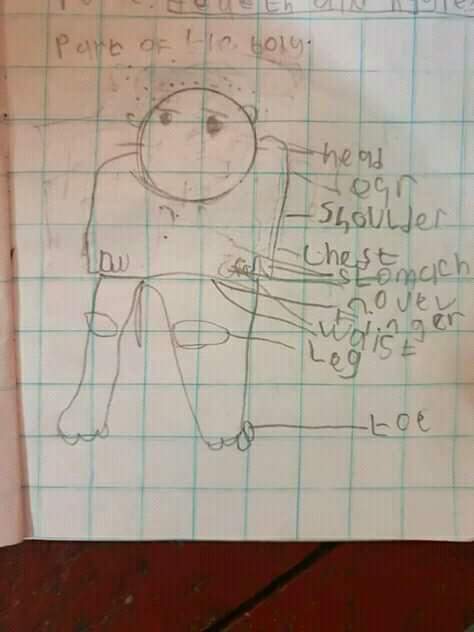 Part of the body.
head
ear
shoulder
chest
stomach
finger
waist
leg
toe